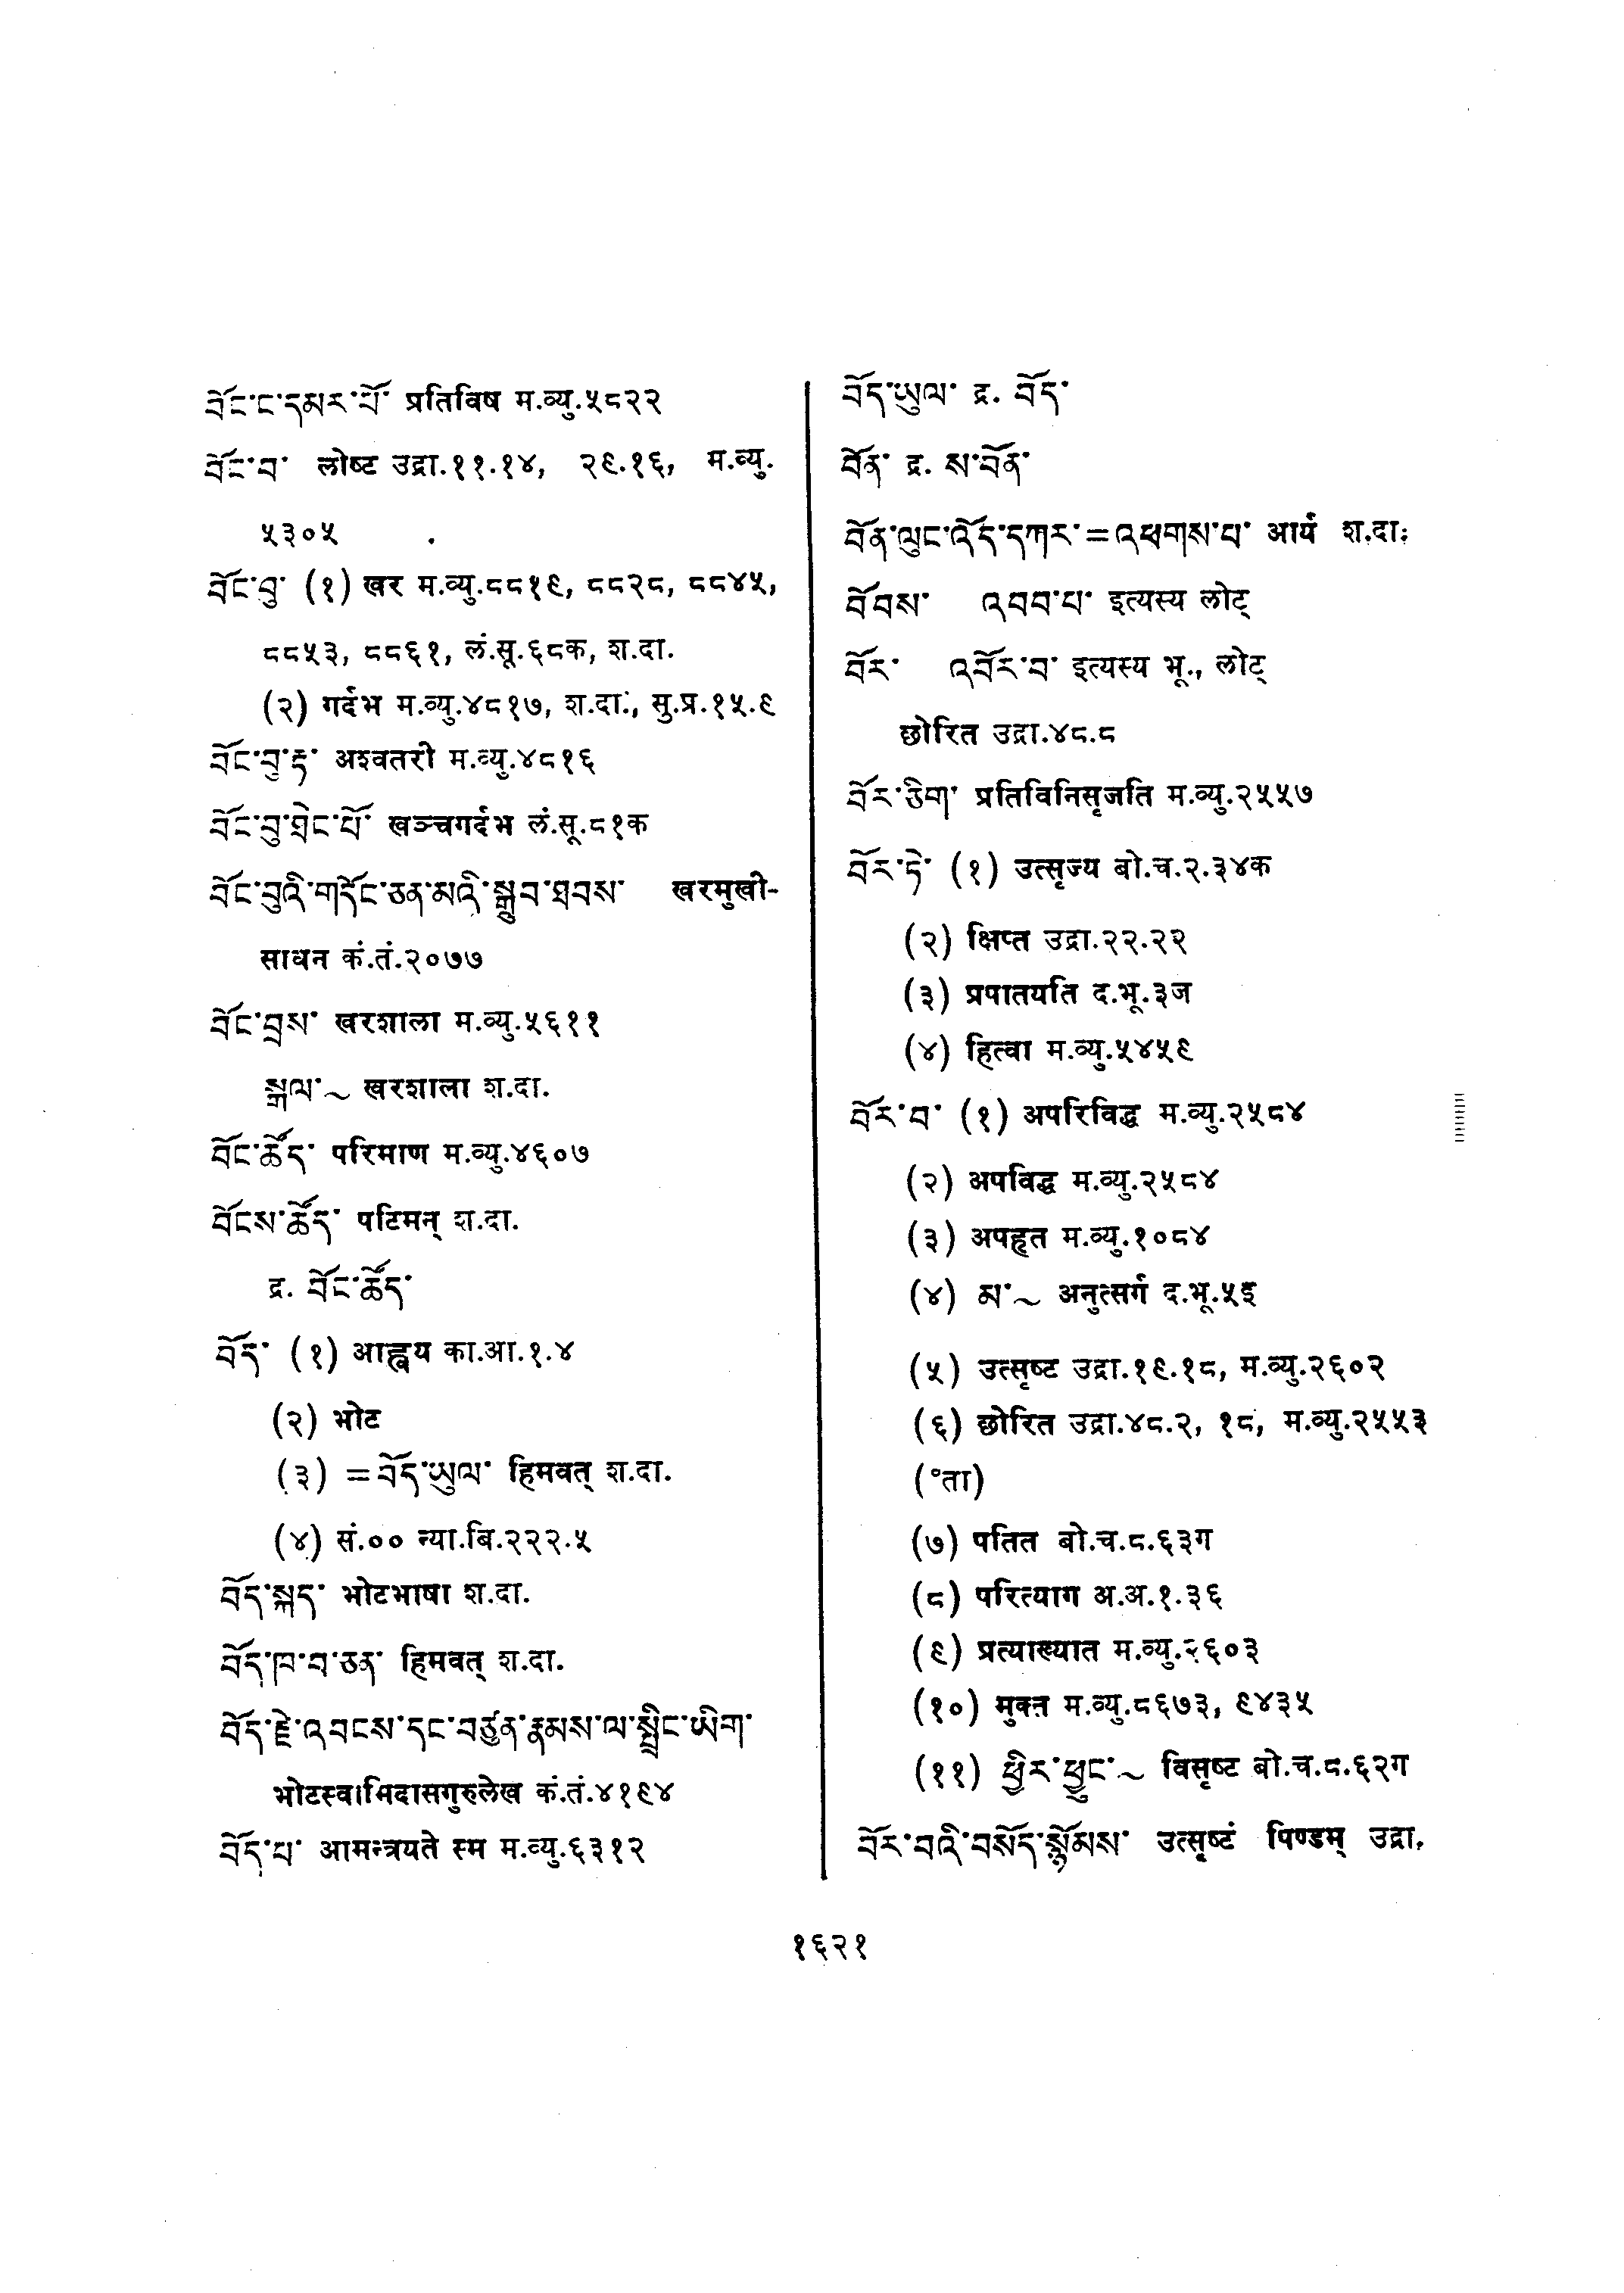 བོང་ང་དམར་པོ་ प्रतिविष म.व्यु.५८२२
བོང་བ་ लोष्ट उद्रा.११.१४, २९.१६, म.व्यु.
५३०५
བོང་བུ་ (१) खर म.व्यु.८८१९, ८८२८, ८८४५,
८८५३, ८८६१, लं.सू.६८क, श.दा.
(२) गर्दभ म.व्यु.४८१७, श.दा., सु.प्र.१५.९
བོང་བུ་རྟ་ अश्वतरी म.व्यु.४८१६
བོང་བུ་ཐེང་པོ་ खञ्चगर्दभ लं.सू.८१क
བོང་བུའི་གདོང་ཅན་མའི་སྒྲུབ་ཐབས་ खरमुखी-
साधन कं.तं.२०७७
བོང་བྲས་ खरशाला म.व्यु.५६११
སྒྲལ་~ खरशाला श.दा.
བོང་ཚོད་ परिमाण म.व्यु.४६०७
བོངས་ཚོད་ पटिमन् श.दा.
द्र. བོང་ཚོད་
བོད་ (१) आह्वय का.आ.१.४
(२) भोट
(३) =བོད་ཡུལ་ हिमवत् श.दा.
(४) सं.०० न्या.बि.२२२.५
བོད་སྐད་ भोटभाषा श.दा.
བོད་ཁ་བ་ཅན་ हिमवत् श.दा.
བོད་རྗེ་འབངས་དང་བཙུན་རྣམས་ལ་སྤྲིང་ཡིག་
भोटस्वामिदासगुरुलेख कं.तं.४१९४
བོད་པ་ आमन्त्रयते स्म म.व्यु.६३१२
བོད་ཡུལ་ द्र. བོད་
བོན་ द्र. ས་བོན་
བོན་ལུང་འོད་དཀར་=འཕགས་པ་ आर्य श.दा.
བོབས་ འབབ་པ་ इत्यस्य लोट्
བོར་ འབོར་བ་ इत्यस्य भू., लोट्
छोरित उद्रा.४८.८
བོར་ཅིག་ प्रतिविनिसृजति म.व्यु.२५५७
བོར་ཏེ་ (१) उत्सृज्य बो.च.२.३४क
(२) क्षिप्त उद्रा.२२.२२
(३) प्रपातयति द.भू.३ज
(४) हित्वा म.व्यु.५४५९
བོར་བ་ (१) अपरिविद्ध म.व्यु.२५८४
(२) अपविद्ध म.व्यु.२५८४
(३) अपहृत म.व्यु.१०८४
(४) མ་~ अनुत्सर्ग द.भू.५इ
(५) उत्सृष्ट उद्रा.१९.१८, म.व्यु.२६०२
(६) छोरित उद्रा.४८.२, १८, म.व्यु.२५५३
(°ता)
(७) पतित बो.च.८.६३ग
(८) परित्याग अ.अ.१.३६
(९) प्रत्याख्यात म.व्यु.२६०३
(१०) मुक्त म.व्यु.८६७३, ९४३५
(११) ཕྱིར་ཕྱུང་~ विसृष्ट बो.च.८.६२ग
བོར་བའི་བསོད་སྙོམས་ उत्सृष्टं पिण्डम् उद्रा.
१६२१